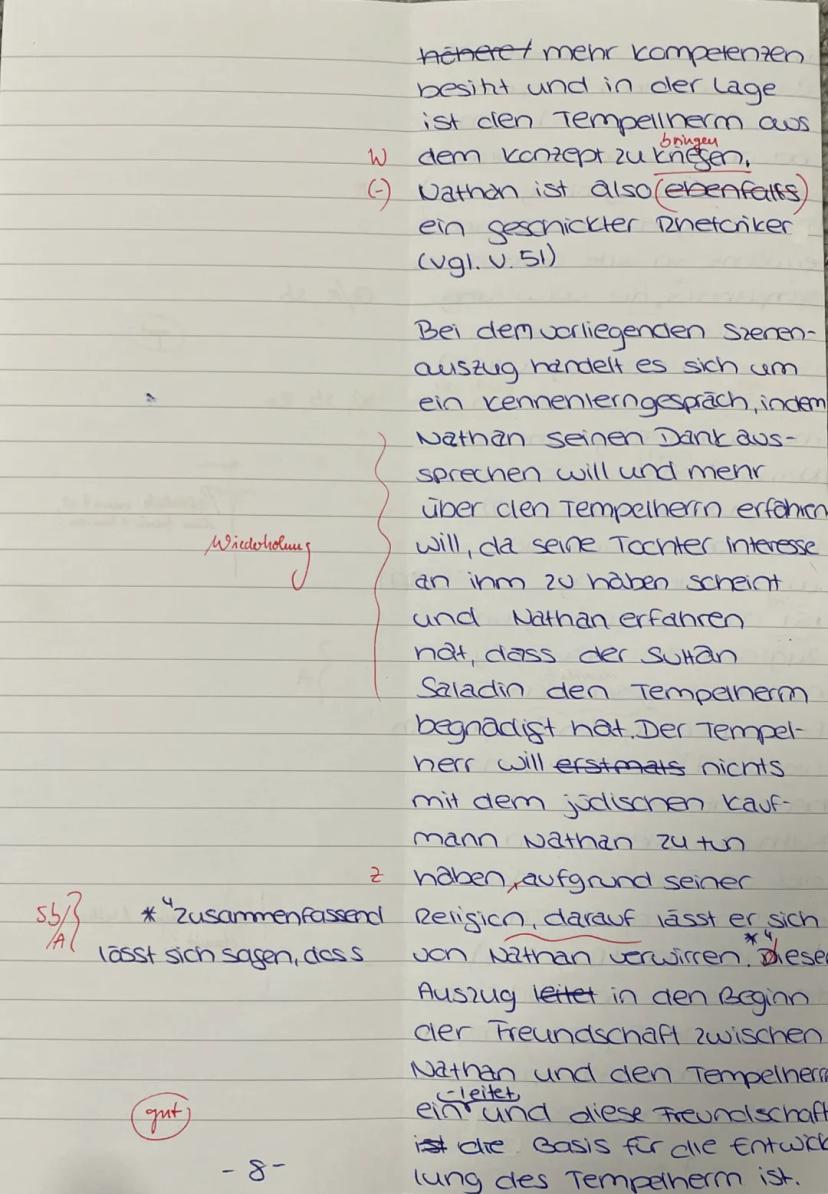 höhere/ mehr kompetenzen
besiht und in der Lage
ist den Tempelherrn aus
bringen
W dem Konzept zu kriegen.
(-) Nathan ist also (ebenfalls)
ein geschickter Rhetoriker
(vgl. V. 51)
Bei dem vorliegenden Szenen-
auszug handelt es sich um
ein Kennenlerngespräch, indem
Nathan seinen Dank aus-
sprechen will und mehr
über den Tempelherrn erfahren
Wiederholung will, da seine Tochter Interesse
an ihm zu haben scheint
und Nathan erfahren
hat, dass der Sultan
Saladin den Tempelherrn
begnadigt hat. Der Tempel-
herr will erstmals nichts
mit dem jüdischen Kauf-
mann Nathan zu tun
Z haben, aufgrund seiner
Sb/A *4 Zusammenfassend Religion, darauf lässt er sich
lässt sich sagen, dass von Nathan verwirren. *4 dieser
Auszug leitet in den Beginn
der Freundschaft zwischen
Nathan und den Tempelherrn
-leitet
gut ein und diese Freundschaft
ist die Basis für die Entwick
- 8 - lung des Tempelherrn ist.